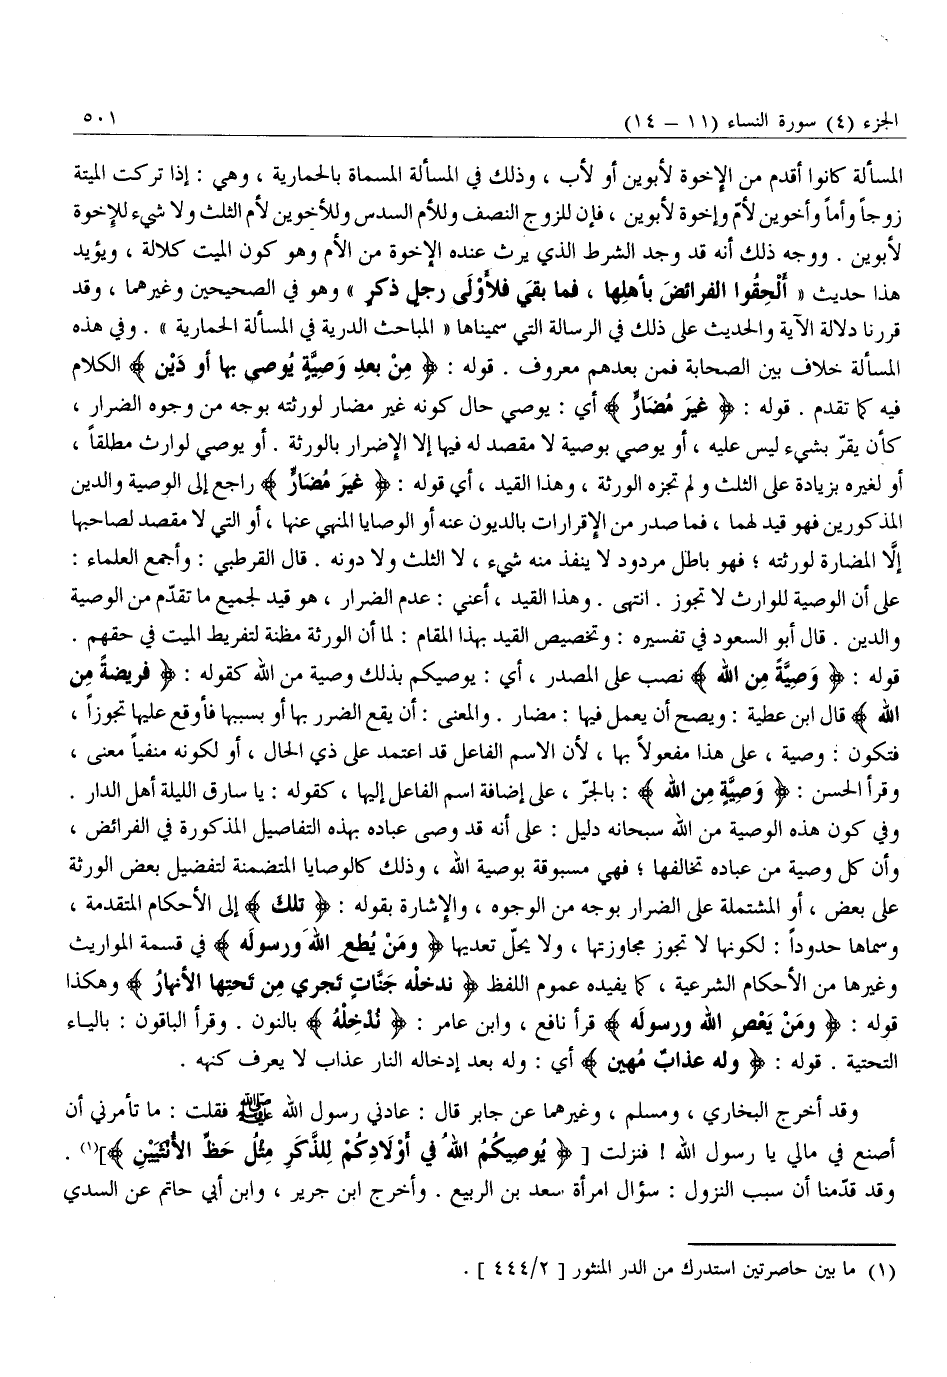 الجزء (٤) سورة النساء (١١ – ١٤) ٥٠١
المسألة كانوا أقدم من الإخوة لأبوين أو لأب ، وذلك في المسألة المسماة بالحمارية ، وهي : إذا تركت الميتة
زوجاً وأماً وأخوين لأمّ وإخوة لأبوين ، فإن للزوج النصف وللأم السدس وللأخوين لأم الثلث ولا شيء للإخوة
لأبوين . ووجه ذلك أنه قد وجد الشرط الذي يرث عنده الإخوة من الأم وهو كون الميت كلالة ، ويؤيد
هذا حديث « أَلْحِقُوا الفرائضَ بأهلِها ، فما بقيَ فلأَوْلَى رجلٍ ذكر » وهو في الصحيحين وغيرهما ، وقد
قررنا دلالة الآية والحديث على ذلك في الرسالة التي سميناها « المباحث الدرية في المسألة الحمارية » . وفي هذه
المسألة خلاف بين الصحابة فمن بعدهم معروف . قوله : ﴿ مِنْ بعدِ وَصِيَّةٍ يُوصي بها أو دَيْن ﴾ الكلام
فيه كما تقدم . قوله : ﴿ غيرَ مُضَارٍّ ﴾ أي : يوصي حال كونه غير مضار لورثته بوجه من وجوه الضرار ،
كأن يقرّ بشيء ليس عليه ، أو يوصي بوصية لا مقصد له فيها إلا الإضرار بالورثة . أو يوصي لوارث مطلقاً ،
أو لغيره بزيادة على الثلث و لم تجزه الورثة ، وهذا القيد ، أي قوله : ﴿ غيرَ مُضَارٍّ ﴾ راجع إلى الوصية والدين
المذكورين فهو قيد لهما ، فما صدر من الإقرارات بالديون عنه أو الوصايا المنهي عنها ، أو التي لا مقصد لصاحبها
إلَّا المضارة لورثته ؛ فهو باطل مردود لا ينفذ منه شيء ، لا الثلث ولا دونه . قال القرطبي : وأجمع العلماء :
على أن الوصية للوارث لا تجوز . انتهى . وهذا القيد ، أعني : عدم الضرار ، هو قيد لجميع ما تقدّم من الوصية
والدين . قال أبو السعود في تفسيره : وتخصيص القيد بهذا المقام : لما أن الورثة مظنة لتفريط الميت في حقهم .
قوله : ﴿ وَصِيَّةً مِن الله ﴾ نصب على المصدر ، أي : يوصيكم بذلك وصية من الله كقوله : ﴿ فريضةً مِن
الله ﴾ قال ابن عطية : ويصح أن يعمل فيها : مضار . والمعنى : أن يقع الضرر بها أو بسببها فأوقع عليها تجوزاً ،
فتكون : وصية ، على هذا مفعولاً بها ، لأن الاسم الفاعل قد اعتمد على ذي الحال ، أو لكونه منفياً معنى ،
وقرأ الحسن : ﴿ وَصِيَّةِ مِن الله ﴾ : بالجرّ ، على إضافة اسم الفاعل إليها ، كقوله : يا سارق الليلة أهل الدار .
وفي كون هذه الوصية من الله سبحانه دليل : على أنه قد وصى عباده بهذه التفاصيل المذكورة في الفرائض ،
وأن كل وصية من عباده تخالفها ؛ فهي مسبوقة بوصية الله ، وذلك كالوصايا المتضمنة لتفضيل بعض الورثة
على بعض ، أو المشتملة على الضرار بوجه من الوجوه ، والإشارة بقوله : ﴿ تلكَ ﴾ إلى الأحكام المتقدمة ،
وسماها حدوداً : لكونها لا تجوز مجاوزتها ، ولا يحلّ تعديها ﴿ ومَنْ يُطعِ اللهَ ورسولَه ﴾ في قسمة المواريث
وغيرها من الأحكام الشرعية ، كما يفيده عموم اللفظ ﴿ ندخلْه جَنَّاتٍ تَجري مِن تَحتِها الأنهارُ ﴾ وهكذا
قوله : ﴿ ومَنْ يَعْصِ الله ورسولَه ﴾ قرأ نافع ، وابن عامر : ﴿ نُدْخِلْهُ ﴾ بالنون . وقرأ الباقون : بالياء
التحتية . قوله : ﴿ وله عذابٌ مُهين ﴾ أي : وله بعد إدخاله النار عذاب لا يعرف كنهه .
وقد أخرج البخاري ، ومسلم ، وغيرهما عن جابر قال : عادني رسول الله ﷺ فقلت : ما تأمرني أن
أصنع في مالي يا رسول الله ! فنزلت [ ﴿ يُوصِيكُمُ اللهُ في أَوْلَادِكُمْ لِلذَّكَرِ مِثْلُ حَظِّ الأُنْثَيَيْنِ ﴾](١) .
وقد قدّمنا أن سبب النزول : سؤال امرأة سعد بن الربيع . وأخرج ابن جرير ، وابن أبي حاتم عن السدي
(١) ما بين حاصرتين استدرك من الدر المنثور [ ٤٤٤/٢ ] .